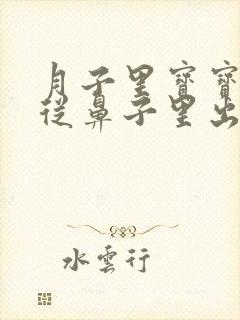 月子里寶寶
從鼻子里出
水雲行